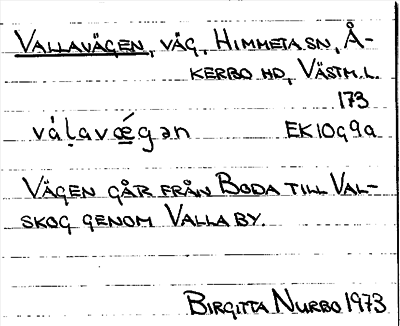 VALLAVÄGEN, VÄG, HIMMETA SN, Å-
KERBO HD, VÄSTM.L.
173
vàḷavǽ̱gən EK10G9a
VÄGEN GÅR FRÅN BODA TILL VAL-
SKOG GENOM VALLA BY.
BIRGITTA NURBO 1973